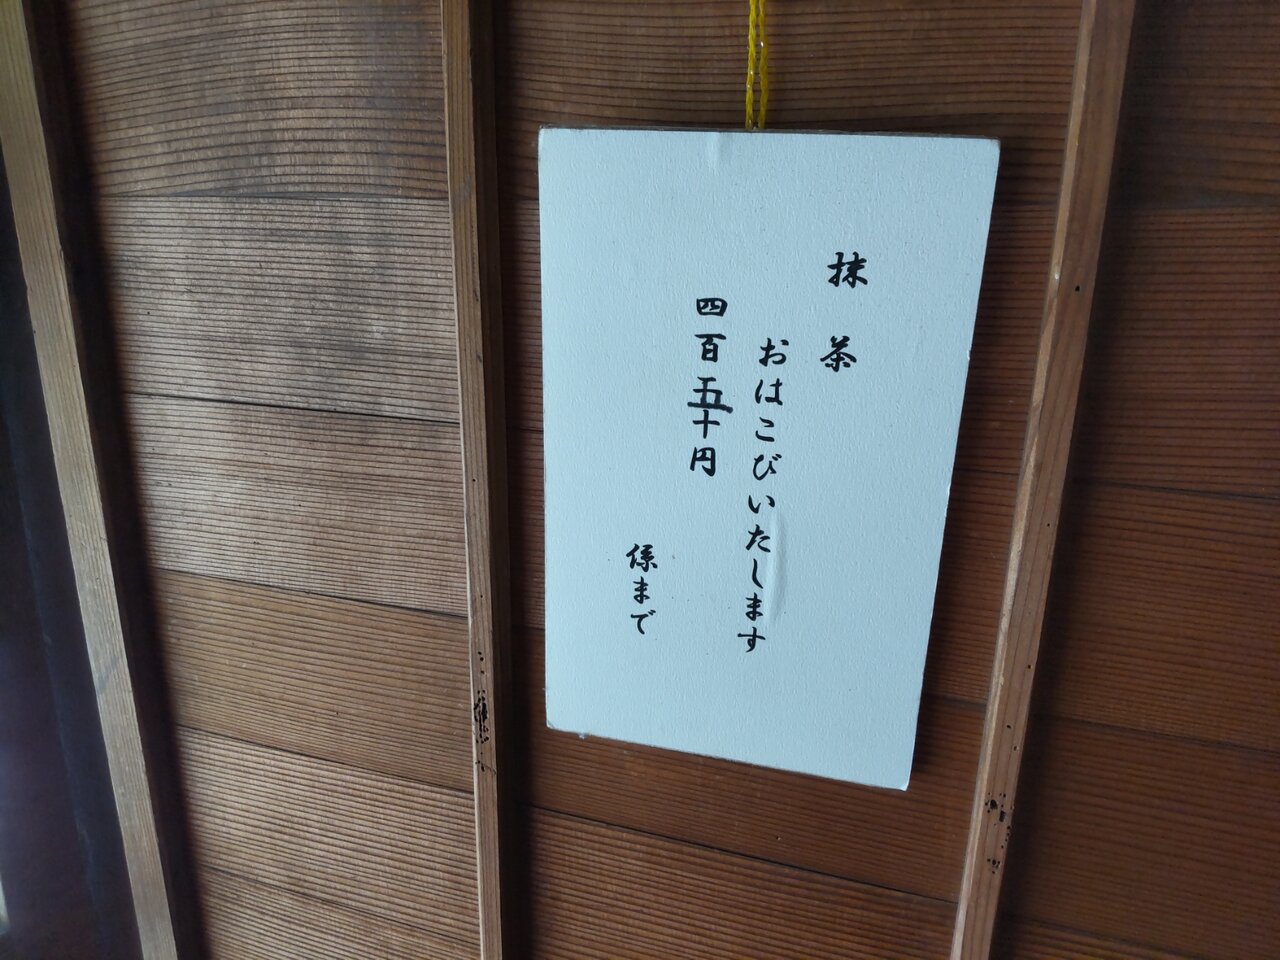 抹茶
おはこびいたします
四百五十円
係まで